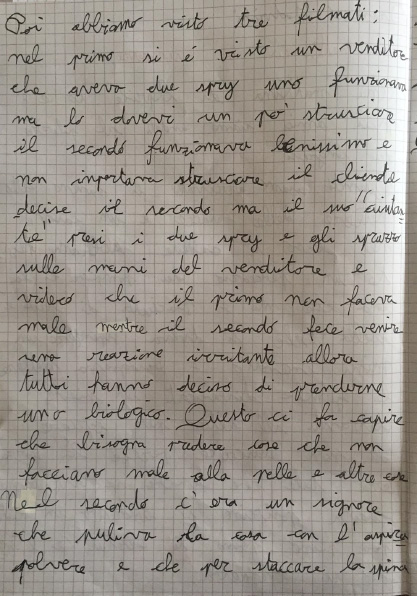 Poi abbiamo visto tre filmati:
nel primo si é visto un venditore
che aveva due spry uno funzionava
ma lo dovevi un po' strusciare
il secondo funzionava benissimo e
non inportava strusciare il cliente
decise il secondo ma il suo "aiutan
te" presi i due spry e gli spruzzo
sulle mani del venditore e
videro che il primo non faceva
male mentre il secondo fece venire
una reazione irritante allora
tutti hanno deciso di prenderne
uno biologico. Questo ci fa capire
che bisogna vedere cose che non
facciano male alla pelle e altre cose
Nel secondo c'era un signore
che puliva la casa con l'aspira
polvere e che per staccare la spina